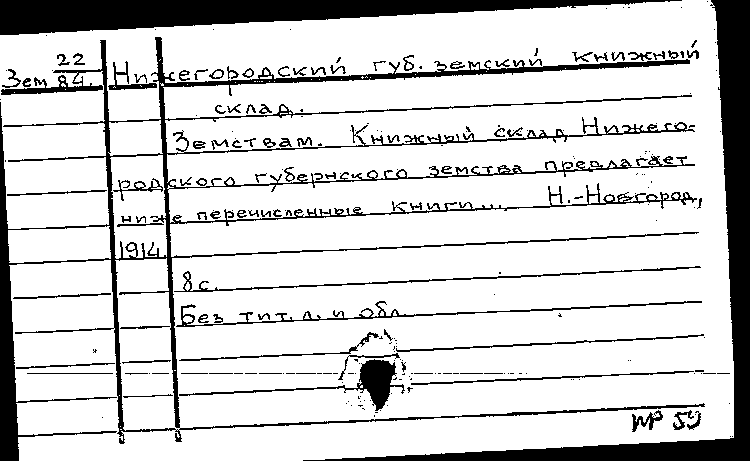 Зем 22/84. Нижегородский губ. земский книжный
склад.
Земствам. Книжный склад Нижего-
родского губернского земства предлагает
ниже перечисленные книги... Н.-Новгород,
1914.
8 с.
Без тит. л. и обл.